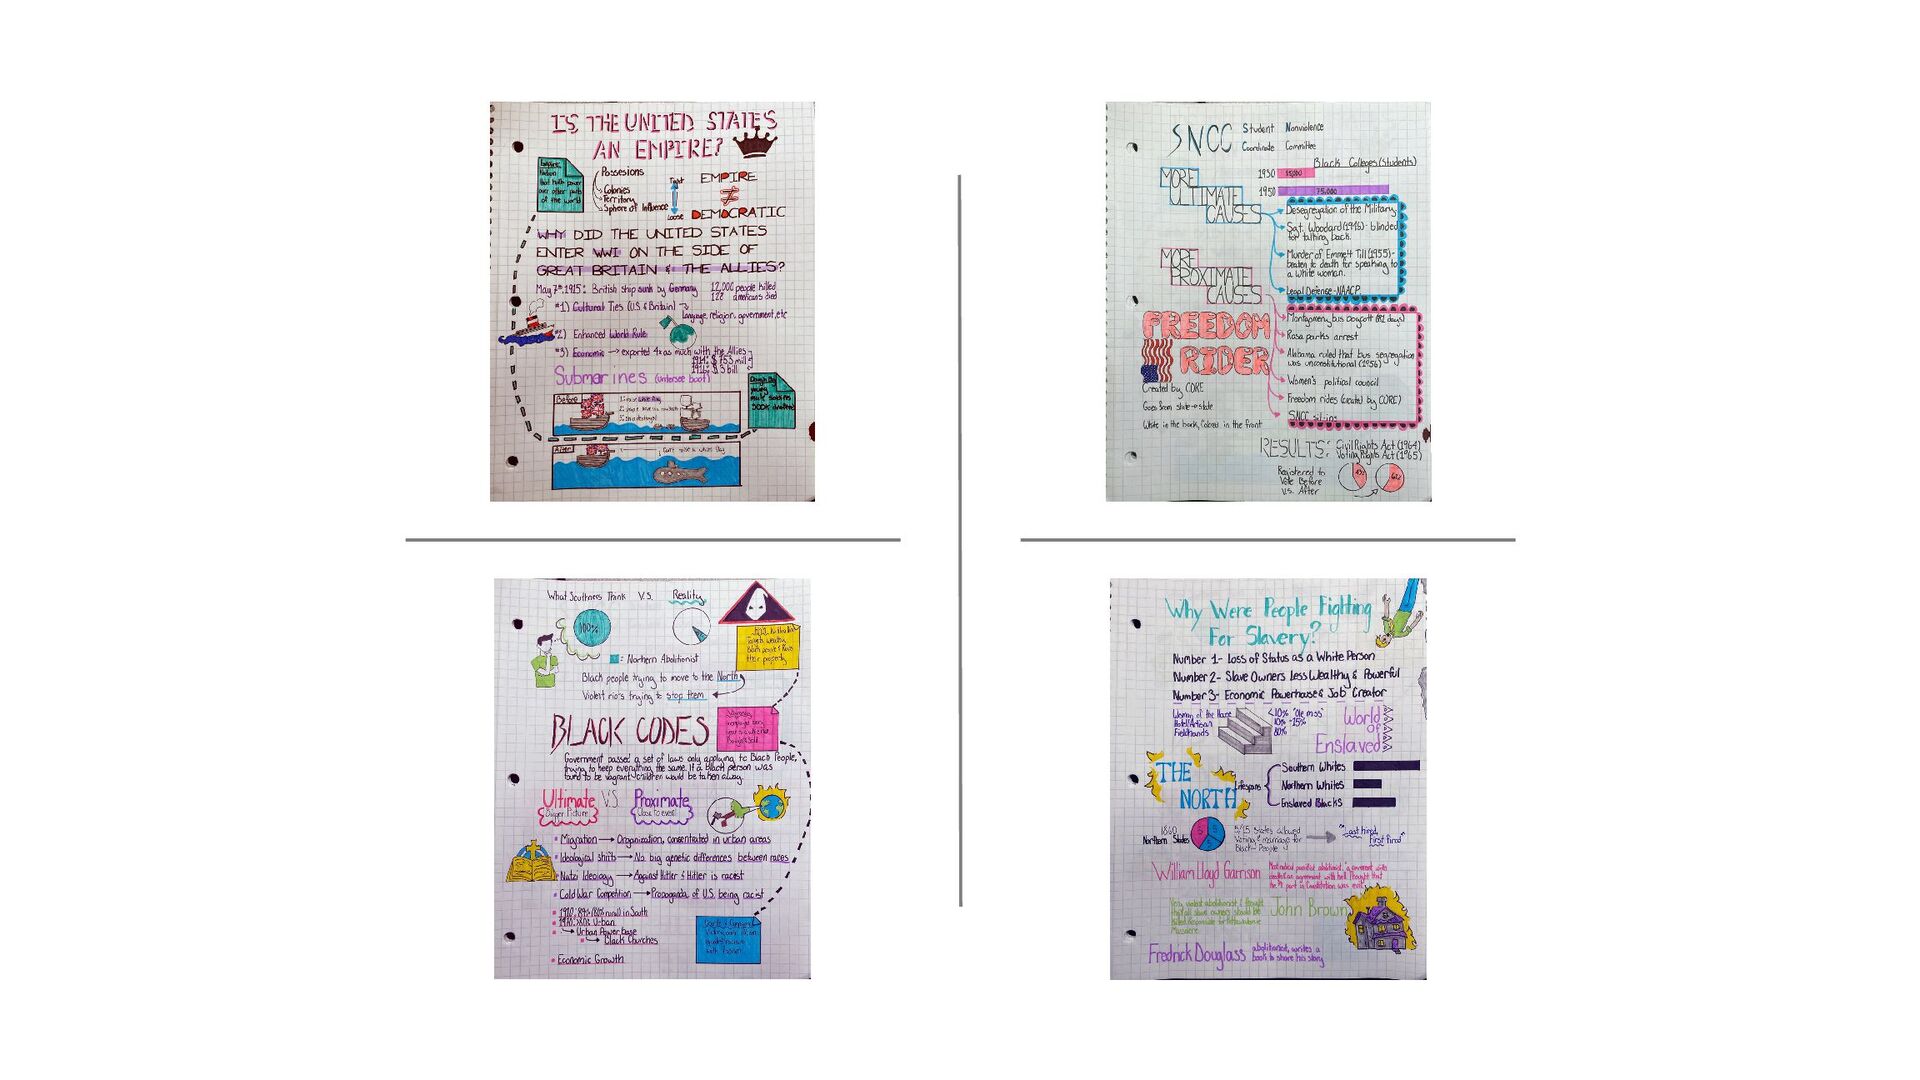 IS THE UNITED STATES
AN EMPIRE?
Empire:
that hold power
over other parts
of the world
Possesions
Colonies
Territory
Sphere of Influence
Tight
Loose
EMPIRE
≠
DEMOCRATIC
WHY DID THE UNITED STATES
ENTER WWI ON THE SIDE OF
GREAT BRITAIN & THE ALLIES?
May 7th, 1915: British ship sunk by Germany
12,000 people killed
128 americans died
#1) Cultural Ties (U.S & Britain)
Language, religion, government, etc
#2) Enhanced World Rule
#3) Economic → exported 4x as much with the Allies
1914: $753 mill
1916: $3 bill
Submarines (untersee boot)
young
male soldiers
500K
Before
After
Can't raise a white flag
SNCC Student Nonviolence
Coordinate Committee
Black Colleges (Students)
1930
1950 75,000
MORE
ULTIMATE
CAUSES
Desegregation of the Military
Sgt. Woodard (1946) - blinded
for talking back.
Murder of Emmett Till (1955) -
beaten to death for speaking to
a white woman.
Legal Defense - NAACP
MORE
PROXIMATE
CAUSES
Montgomery bus boycott (381 days)
Rosa parks arrest
Alabama ruled that bus segregation
was unconstitutional (1956)
Women's political council
Freedom rides (created by CORE)
SNCC sit-ins
FREEDOM
RIDER
Created by CORE
Goes from state → state
White in the back, Colored in the front
RESULTS: Civil Rights Act (1964)
Voting Rights Act (1965)
Registered to
Vote Before
V.S. After
What Southners Think V.S. Reality
100%
= Northern Abolitionist
Black people trying to move to the North
Violent riots trying to stop them
their property
BLACK CODES
Government passed a set of laws only applying to Black People,
trying to keep everything the same. If a black person was
found to be vagrant, children would be taken away.
Ultimate V.S. Proximate
Bigger Picture
Close to event
Migration → Organization, concentrated in urban areas
Ideological shifts → No big genetic differences between races
Nazi Ideology → Against Hitler & Hitler is racist
Cold War Competition → Propaganda of U.S. being racist
1910: 89% (80% rural) in South
1970: 80% Urban
Urban Power base
Black Churches
Economic Growth
Why Were People Fighting
For Slavery?
Number 1- Loss of Status as a White Person
Number 2- Slave Owners Less Wealthy & Powerful
Number 3- Economic Powerhouse & Job Creator
Woman of the House
Hotel/Artisan
Fieldhands
10% "Ole miss"
10% -15%
80%
World
of
Enslaved
THE
NORTH
Lifespans
Southern Whites
Northern Whites
Enslaved Blacks
1860
Northern States
5/15 States allowed
voting & marriage for
Black People
"Last hired,
First fired"
William Lloyd Garrison
John Brown
Fredrick Douglass
abolitionist, writes a
book to share his story